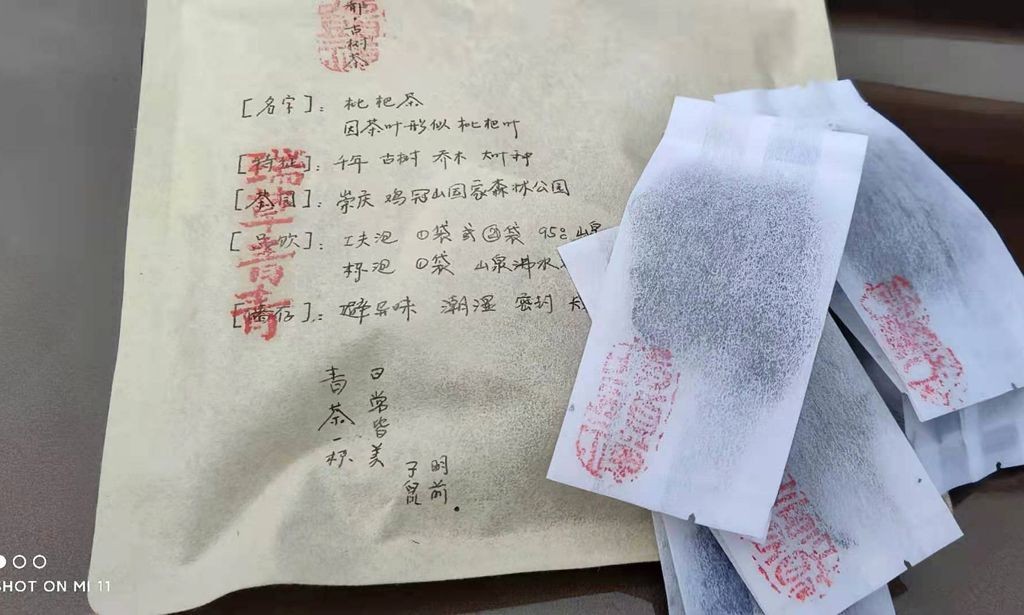 郁·古树茶
[名字]：枇杷茶
因茶叶形似枇杷叶
[特征]：千年 古树 乔木 大叶种
[茶园]：崇庆 鸡冠山国家森林公园
[品饮]：工夫泡 ①袋或②袋 95℃ 山泉
杯泡 ①袋 山泉沸水
[储存]：避异味 潮湿 密封
瑞草青青
日常皆美
青茶一杯
明前
子鼠
SHOT ON MI 11